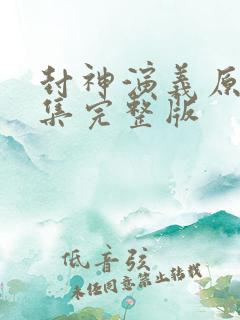 封神演义原
集完整版
低音弦
未经同意禁止转载